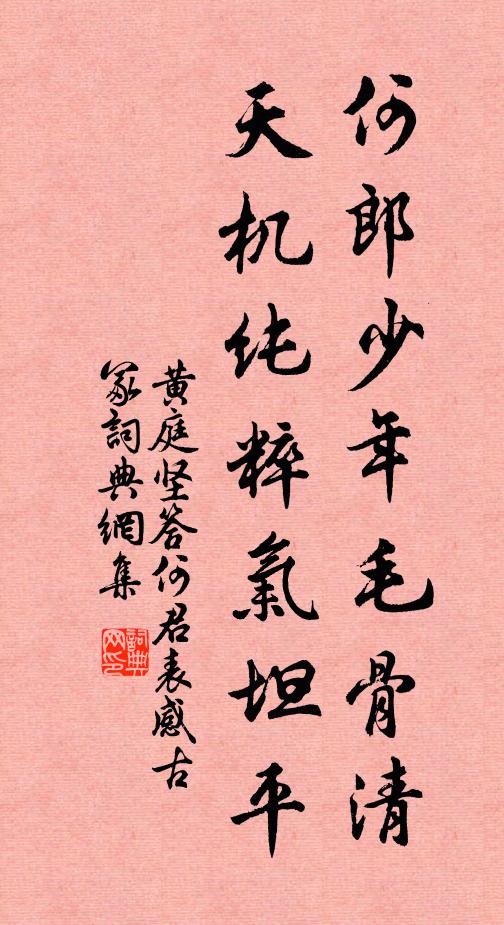 何郎少年毛骨清
天机纯粹氣坦平
黄庭坚答何君表感古
冢詞典網集
詞典網印